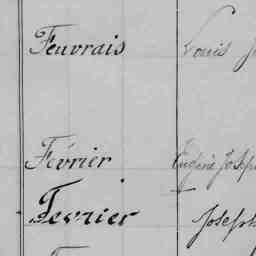 Feuvrais Louis
Février Eugène Joseph
Fevrier Joseph